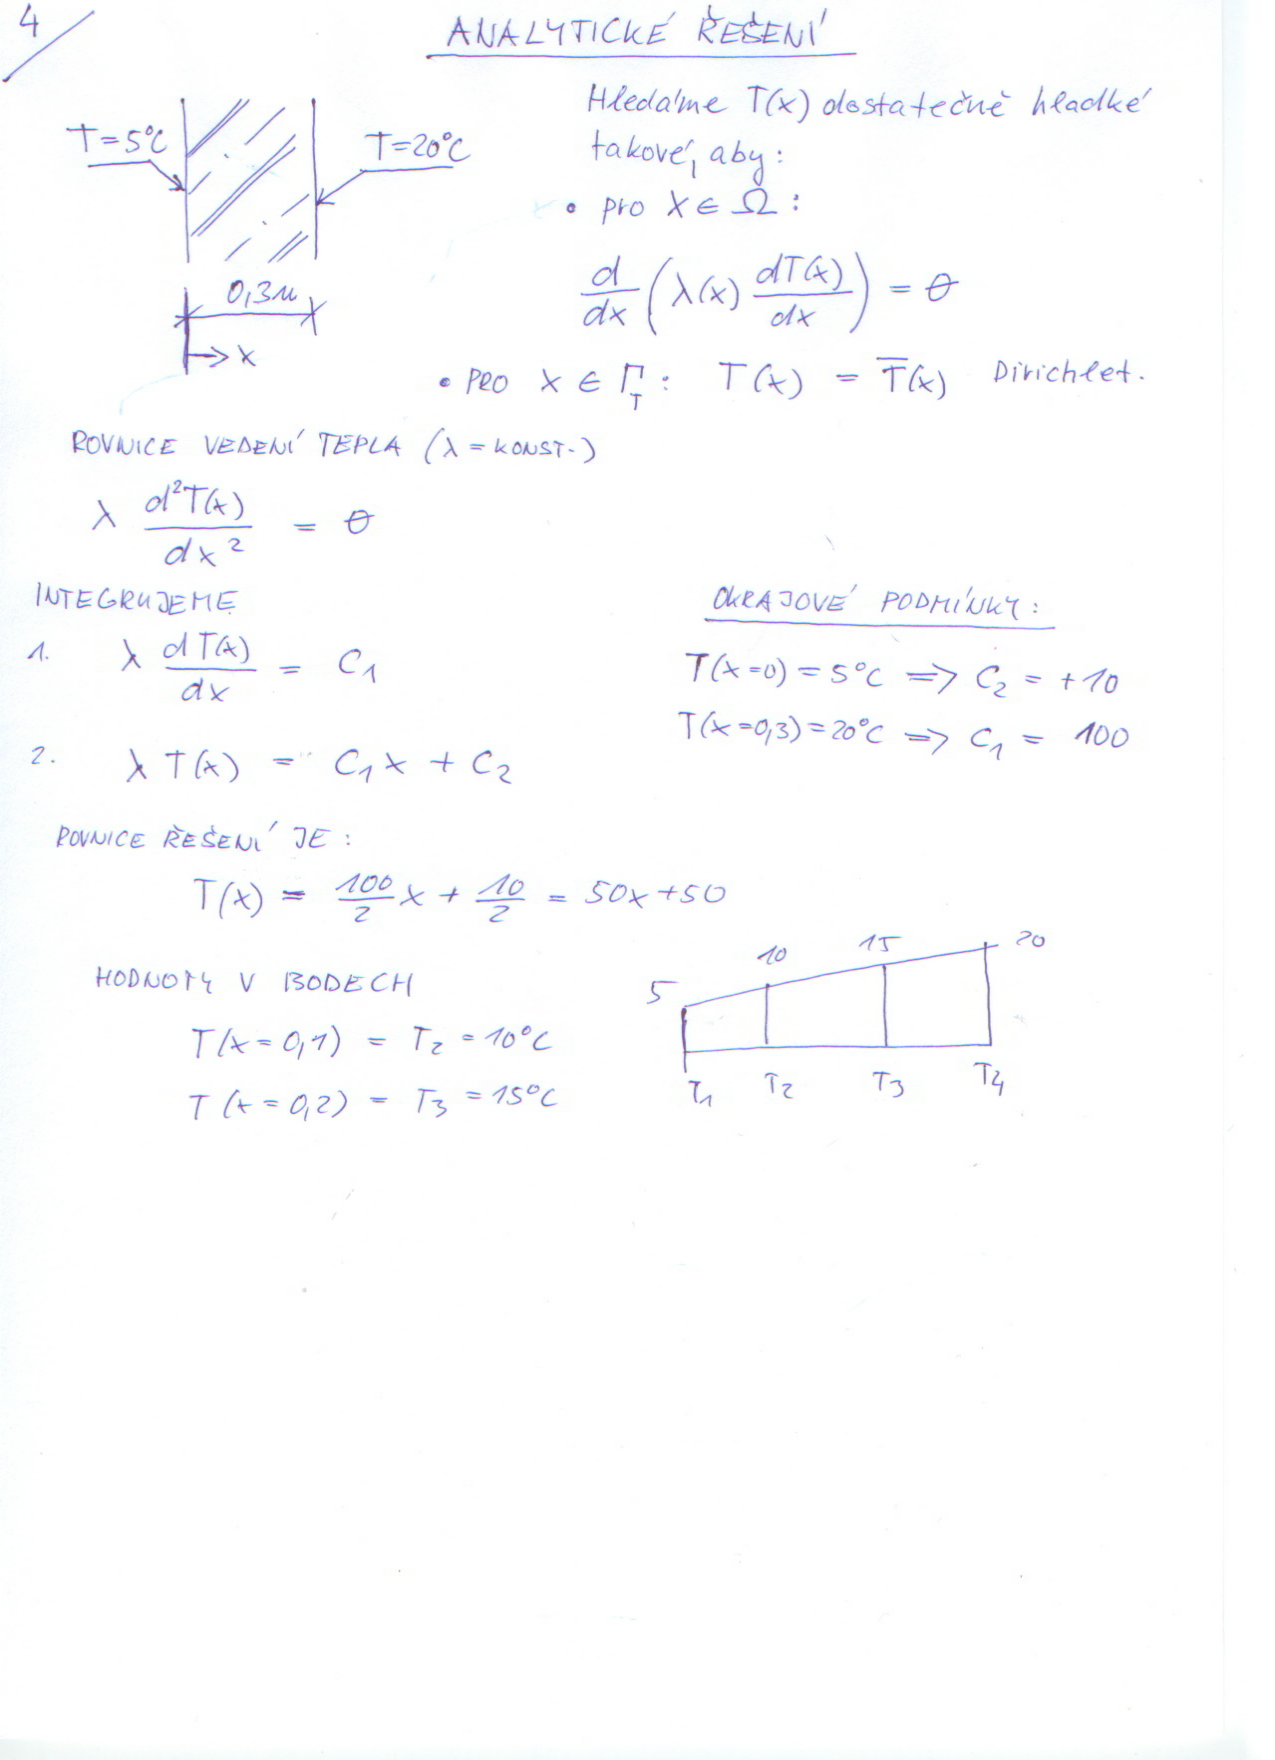 4
ANALYTICKÉ ŘEŠENÍ
T=5°C
T=20°C
0,3m
x
Hledáme T(x) dostatečně hladké
takové, aby:
• pro x ∈ Ω :
d/dx (λ(x) dT(x)/dx) = 0
• PRO x ∈ Γ_T : T(x) = T̅(x) Dirichlet.
ROVNICE VEDENÍ TEPLA (λ = KONST.)
λ d²T(x)/dx² = 0
INTEGRUJEME
1. λ dT(x)/dx = C₁
2. λ T(x) = C₁x + C₂
OKRAJOVÉ PODMÍNKY:
T(x=0) = 5°C => C₂ = +10
T(x=0,3) = 20°C => C₁ = 100
ROVNICE ŘEŠENÍ JE :
T(x) = 100/2 x + 10/2 = 50x + 50
HODNOTY V BODECH
T(x = 0,1) = T₂ = 10°C
T(x = 0,2) = T₃ = 15°C
5 10 15 20
T₁ T₂ T₃ T₄